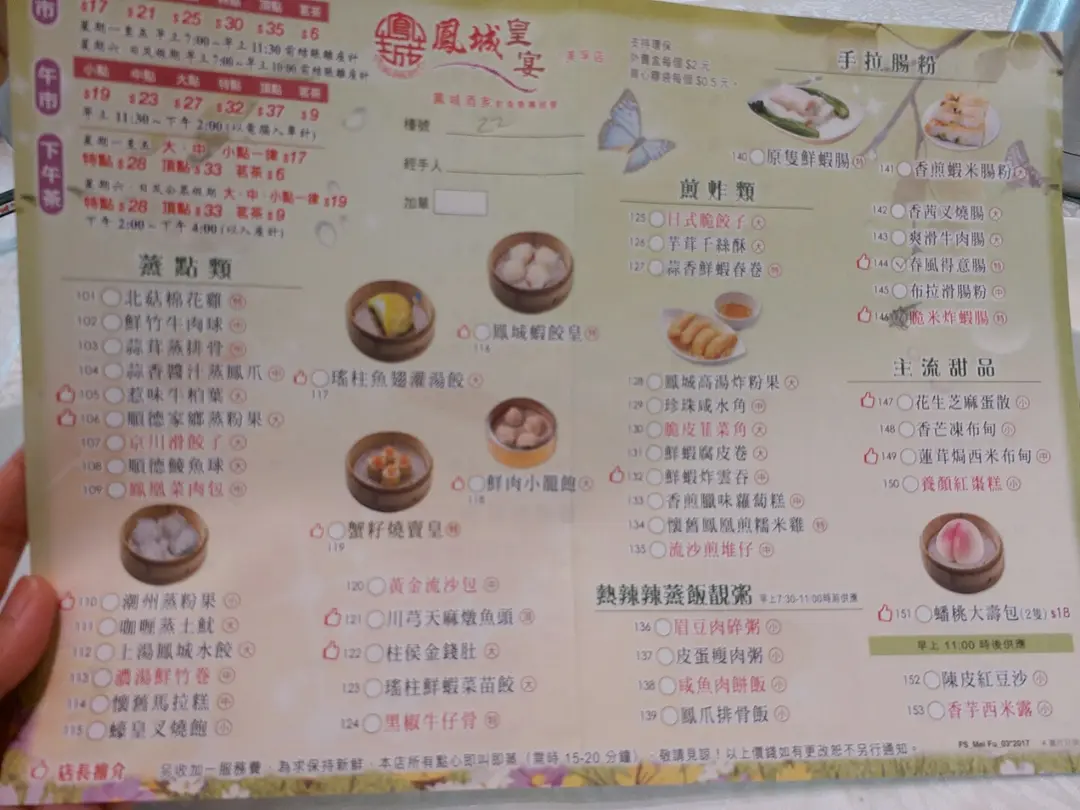 市
$17 $21 $25 $30 $35 $6
星期一至五 早上7:00~早上11:30前結賬離座計
星期六、日及假期 早上7:00~早上10:00前結賬離座計
午市
小點 中點 大點 特點 頂點 茗茶
$19 $23 $27 $32 $37 $9
早上11:30~下午2:00(以電腦入單計)
下午茶
星期一至五 大、中、小點一律$17
特點$28 頂點$33 茗茶$6
星期六、日及公眾假期 大、中、小點一律$19
特點$28 頂點$33 茗茶$9
下午2:00~下午4:00(以入座計)
鳳城
鳳城皇宴
美孚店
支持環保
外賣盒每個$2元,
背心膠袋每個$0.5元。
檯號 22
經手人
加單
蒸點類
101 北菇棉花雞 特
102 鮮竹牛肉球 中
103 蒜茸蒸排骨 中
104 蒜香醬汁蒸鳳爪 中
105 惹味牛柏葉 大
106 順德家鄉蒸粉果 大
107 京川滑餃子 大
108 順德鯪魚球 大
109 鳳凰菜肉包 中
110 潮州蒸粉果 小
111 咖喱蒸土魷 大
112 上湯鳳城水餃 大
113 濃湯鮮竹卷 中
114 懷舊馬拉糕 中
115 蠔皇叉燒飽 小
鳳城蝦餃皇 特
116
瑤柱魚翅灌湯餃 大
117
鮮肉小籠飽 大
118
蟹籽燒賣皇 特
119
120 黃金流沙包 中
121 川芎天麻燉魚頭 頂
122 柱侯金錢肚 大
123 瑤柱鮮蝦菜苗餃 大
124 黑椒牛仔骨 特
煎炸類
125 日式脆餃子 大
126 芋茸千絲酥 大
127 蒜香鮮蝦春卷 特
128 鳳城高湯炸粉果 大
129 珍珠咸水角 中
130 脆皮韮菜角 大
131 鮮蝦腐皮卷 大
132 鮮蝦炸雲吞 中
133 香煎臘味蘿蔔糕 中
134 懷舊鳳凰煎糯米雞 特
135 流沙煎堆仔 中
熱辣辣蒸飯靚粥 早上7:30-11:00時前供應
136 眉豆肉碎粥 小
137 皮蛋瘦肉粥 小
138 咸魚肉餅飯 小
139 鳳爪排骨飯 小
手拉腸粉
140 原隻鮮蝦腸 特
141 香煎蝦米腸粉 大
142 香茜叉燒腸 大
143 爽滑牛肉腸 大
144 春風得意腸 特
145 布拉滑腸粉 中
146 脆米炸蝦腸 特
主流甜品
147 花生芝麻蛋散 小
148 香芒凍布甸 小
149 蓮茸焗西米布甸 中
150 養顏紅棗糕 小
151 蟠桃大壽包(2隻) $18
早上 11:00 時後供應
152 陳皮紅豆沙 小
153 香芋西米露 小
PS_Mei Fu_03*2017
店長推介
另收加一服務費,為求保持新鮮,本店所有點心即叫即蒸(需時 15-20 分鐘),敬請見諒!以上價錢如有更改恕不另行通知。